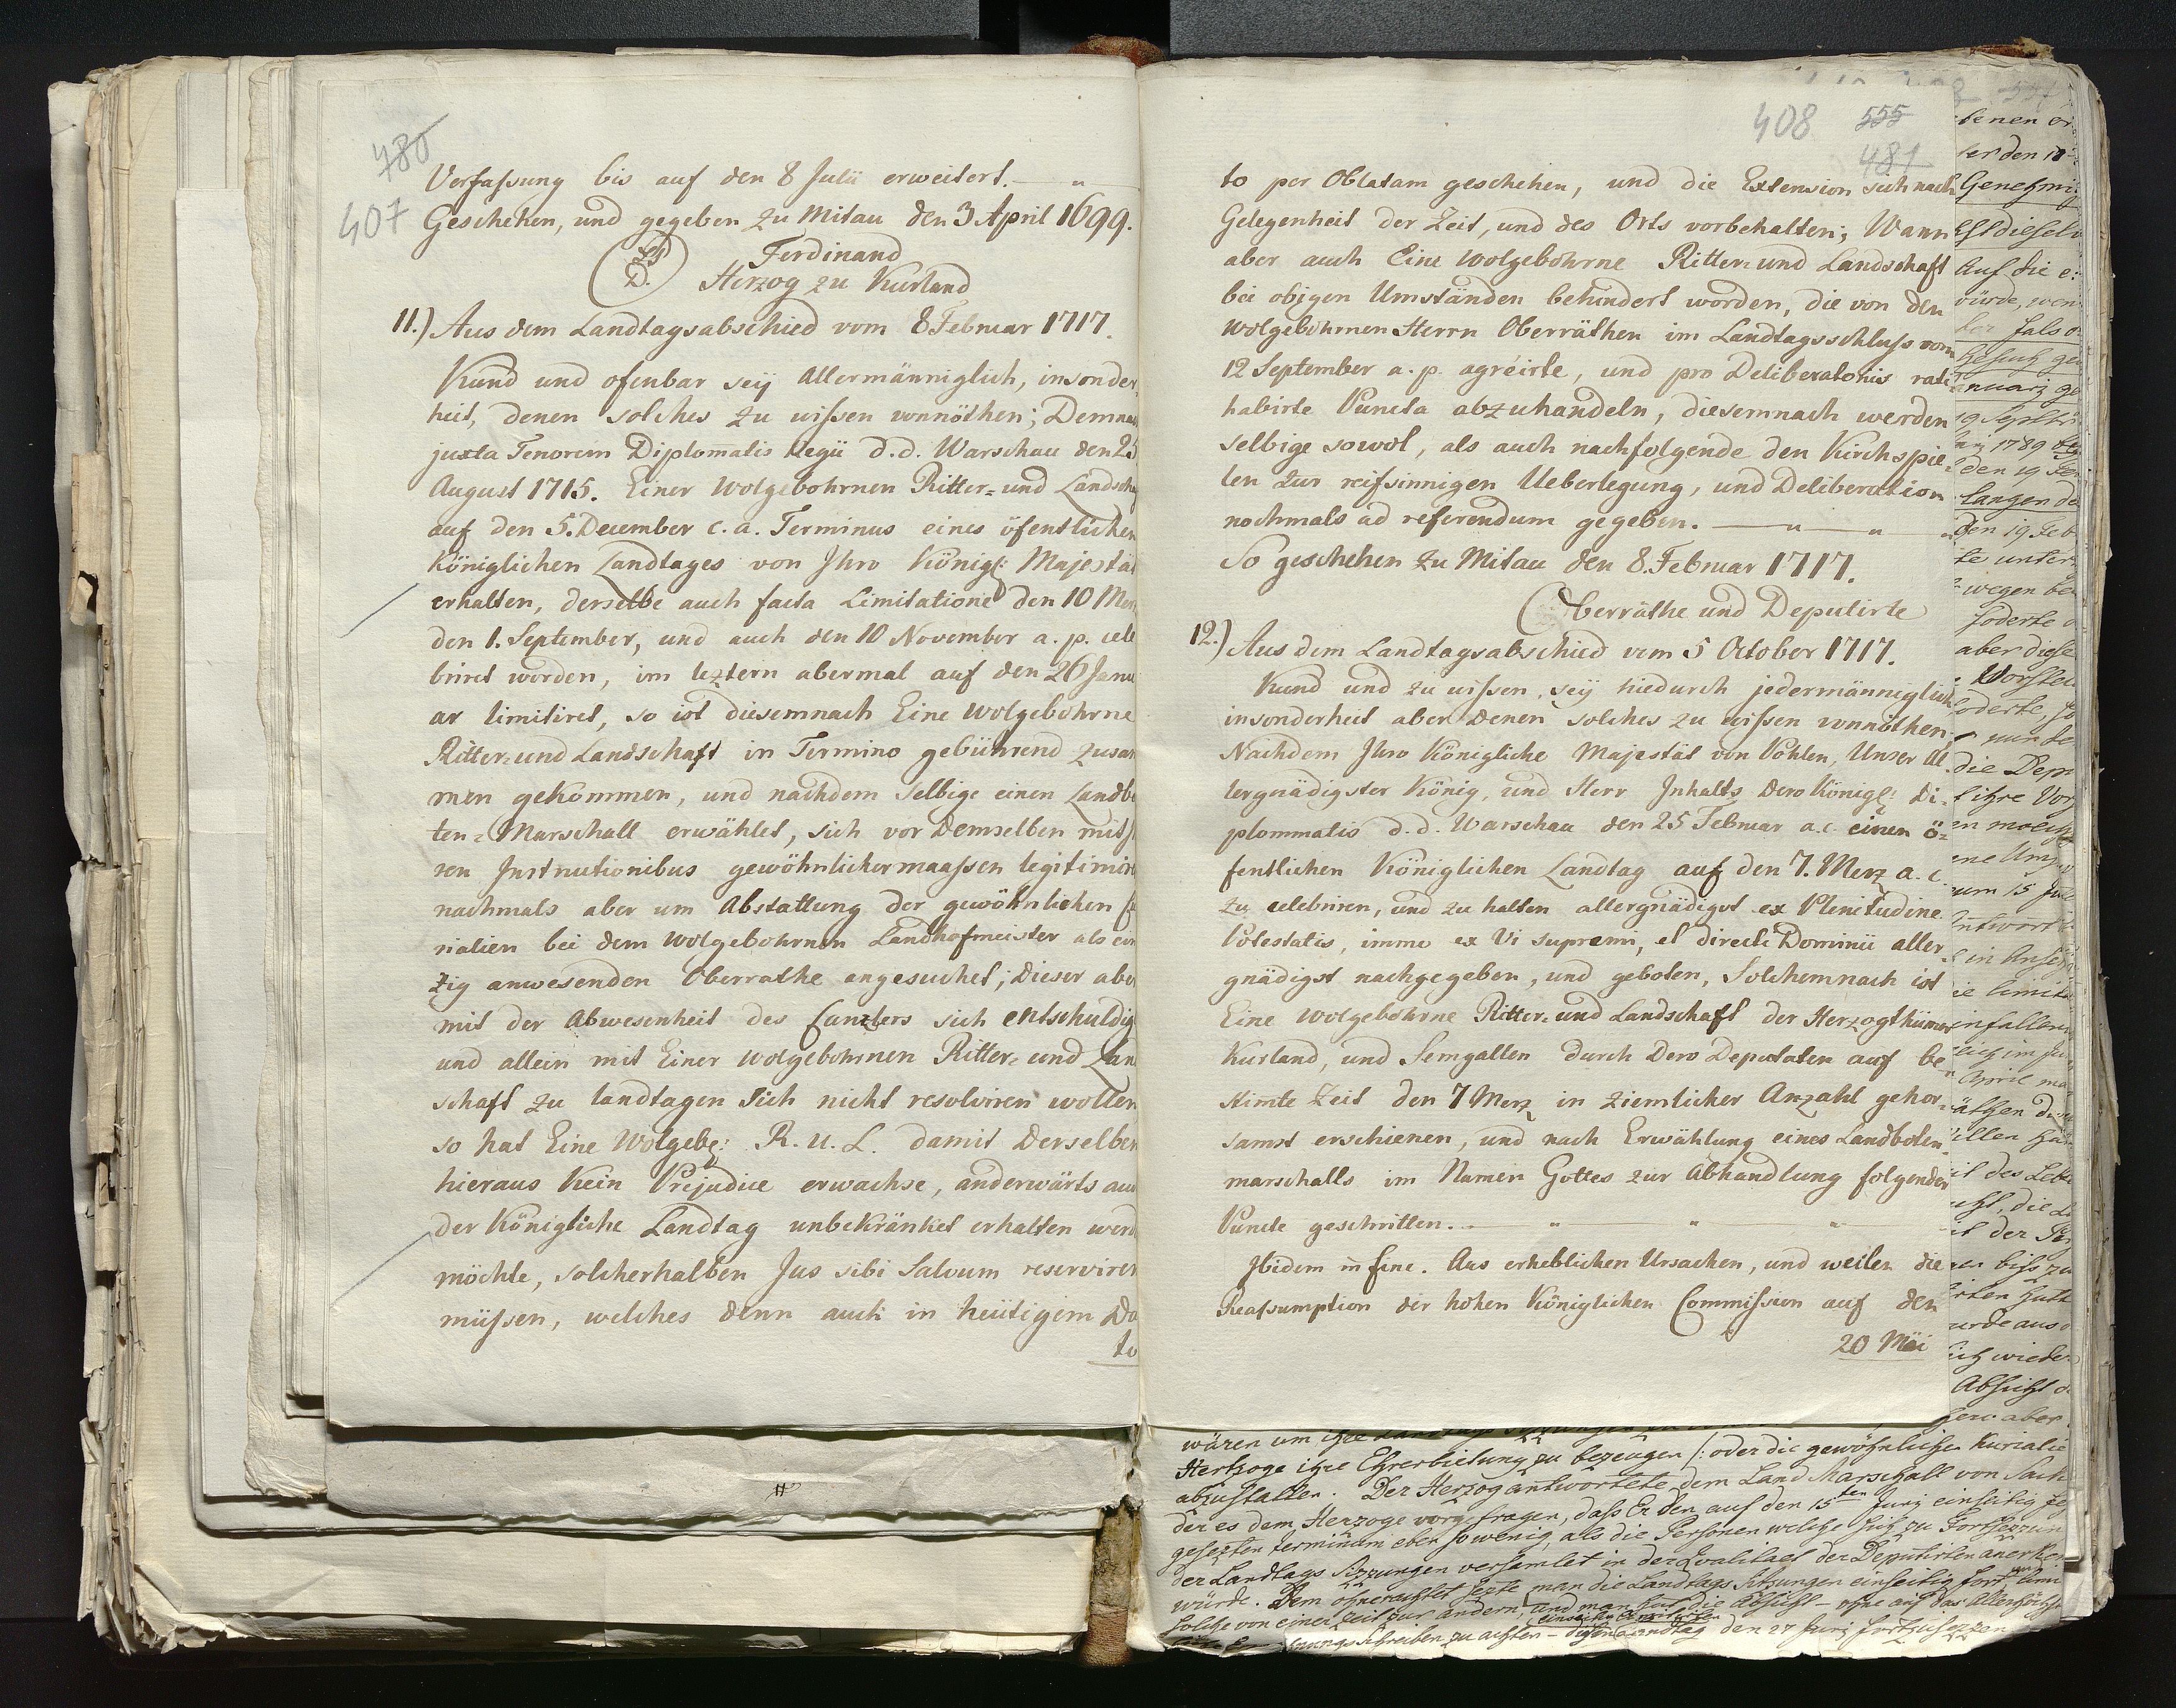 480
407
Verfassung bis auf den 8 Julii erweitert. — " —
Geschehen, und gegeben zu Mitau den 3 April 1699.
Ferdinand
Herzog zu Kurland
11.) Aus dem Landtagsabschied vom 8 Februar 1717.
Kund und ofenbar seÿ allermänniglich, insonder
heit, denen solches zu wissen vonnöthen; Demna
juxta Tenorem Diplomatis Regii d.d. Warschau den 25
August 1715. Einer Wolgebohrnen Ritter= und Landscha
auf den 5. December c. a. Terminus eines öfentlichen
Königlichen Landtages von Ihro Königl: Majestät
erhalten, derselbe auch facta Limitatione den 10 Mer
den 1. September, und auch den 10 November a. p. cele
briret worden, im leztern abermal auf den 26 Janu
ar limitiret, so ist diesemnach Eine Wolgebohrne
Ritter= und Landschaft in Termino gebührend zusam
men gekommen, und nachdem selbige einen Landbo
ten= Marschall erwählet, sich vor Demselben mit
ren Instructionibus gewöhnlichermaassen legitimirt
nachmals aber um Abstattung der gewöhnlichen Cu
rialien bei dem Wolgebohrnen Landhofmeister als ein
zig anwesenden Oberrathe angesuchet; Dieser aber
mit der Abwesenheit des Canzlers sich entschuldig
und allein mit Einer Wolgebohrnen Ritter= und Lan
schaft zu landtagen sich nicht resolviren wollen
so hat Eine Wolgeb: R. u. L. damit Derselben
hieraus kein Prejudice erwachse, anderwärts auch
der Königliche Landtag unbekränket erhalten werd
möchte, solcherhalben Jus sibi Salvum reserviren
müssen, welches denn auch in heütigem Da
to
408 555
481
to per Oblatam geschehen, und die Extension sich nach
Gelegenheit der Zeit, und des Orts vorbehalten; Wann
aber auch Eine Wolgebohrne Ritter= und Landschaft
bei obigen Umständen behindert worden, die von den
Wolgebohrnen Herrn Oberräthen im Landtagsschluss vom
12 September a. p. agréirte, und pro Deliberatoriis rati
habirte Puncta abzuhandeln, diesemnach werden
selbige sowol, als auch nachfolgende den Kirchspie=
len zur reifsinnigen Ueberlegung, und Deliberation
nochmals ad referendum gegeben. — " — "
So geschehen zu Mitau den 8. Februar 1717.
Oberräthe und Deputirte
12.) Aus dem Landtagsabschied vom 5 October 1717.
Kund und zu wissen seÿ hiedurch jedermänniglich
insonderheit aber denen solches zu wissen vonnöthen
Nachdem Ihro Königliche Majestät von Pohlen, Unser Al
lergnädigster König, und Herr Inhalts Dero Königl: Di=
plommatis d. d. Warschau den 25 Februar a. c. einen ö=
fentlichen Königlichen Landtag auf den 7. Merz a. c.
zu celebriren, und zu halten allergnädigst ex Plenitudine
Potestatis, immo ex Vi supremi, et directi Dominii aller
gnädigst nachgegeben, und geboten, Solchemnach ist
Eine Wolgebohrne Ritter= und Landschaft der Herzogthümer
Kurland, und Semgallen durch Dero Deputaten auf be=
stimte Zeit den 7 Merz in ziemlicher Anzahl gehor=
samst erschienen, und nach Erwählung eines Landboten=
marschalls im Namen Gottes zur Abhandlung folgender
Puncte geschritten. — " " "
Ibidem in fine. Aus erheblichen Ursachen, und weilen die
Reassumption der hohen Königlichen Commission auf den
20 Mäi
Hertzoge ihre Ehrerbietung zu bezeugen /: oder die gewöhnliche Kurialie
abzustatten. Der Herzog antwortete dem Land Marschall von Sack
der es dem Herzoge vorgetragen, dass Er den auf den 15ten Junj einseitig
gesezten terminum eben so wenig, als die Personen welche sich zu Fortsezzun
der Landtags Sizzungen versamlet in der Qualitaet der Deputirten anerken
würde. Dem ohnerachtet sezte man die Landtags Sitzungen einseitig fort
solche von einer Zeit zur andern, und man hat die Absicht – ohne auf das Allerhöchste
schreiben zu achten – diesen Landtag den 27 Junj fortzusezzen